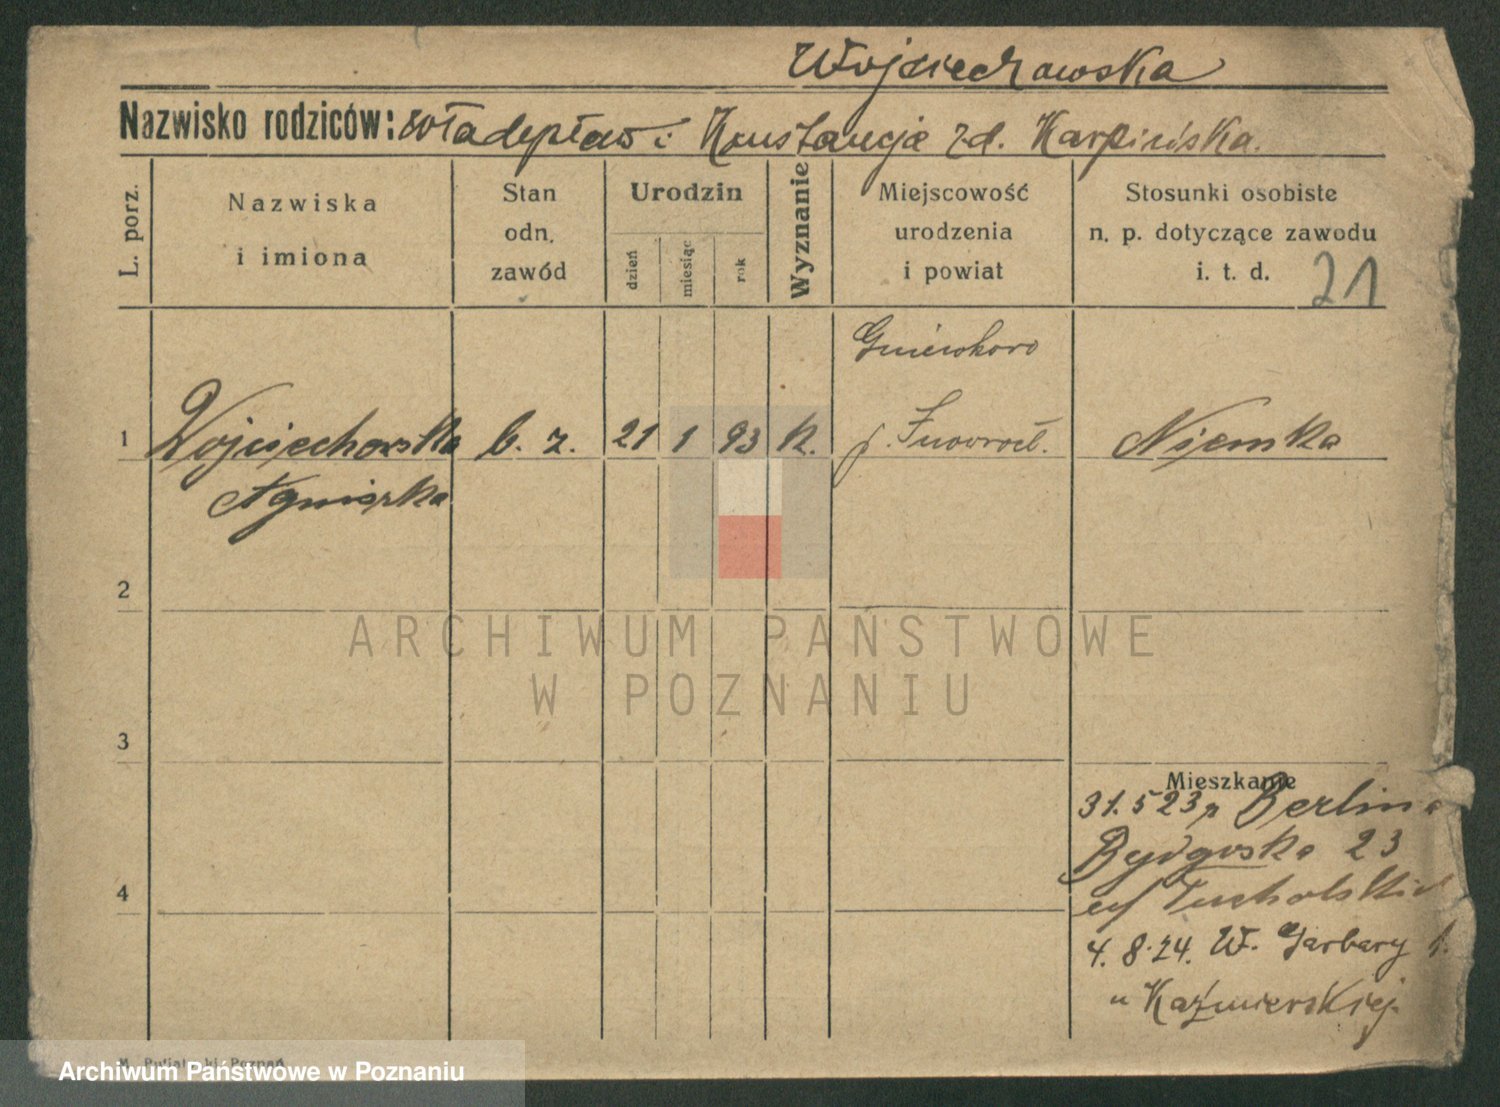 Wojciechowska
Nazwisko rodziców: Władysław i Konstancja zd. Karpińska.
L. porz.
Nazwiska
i imiona
Stan
odn.
zawód
Urodzin
dzień
miesiąc
rok
Wyznanie
Miejscowość
urodzenia
i powiat
Stosunki osobiste
n. p. dotyczące zawodu
i. t. d. 21
Gniewkowo
1 Wojciechowska b. z. 21 1 93 K. p. Inowrocł. Niemka
Agnieszka
2
3
Mieszkanie
31.5 23 z Berlina
Bydgoska 23
4
4. 8. 24. W. Garbary 1.
u Kaźmierskiej.
M. Putiatycki Poznań
ARCHIWUM PAŃSTWOWE
W POZNANIU
Archiwum Państwowe w Poznaniu